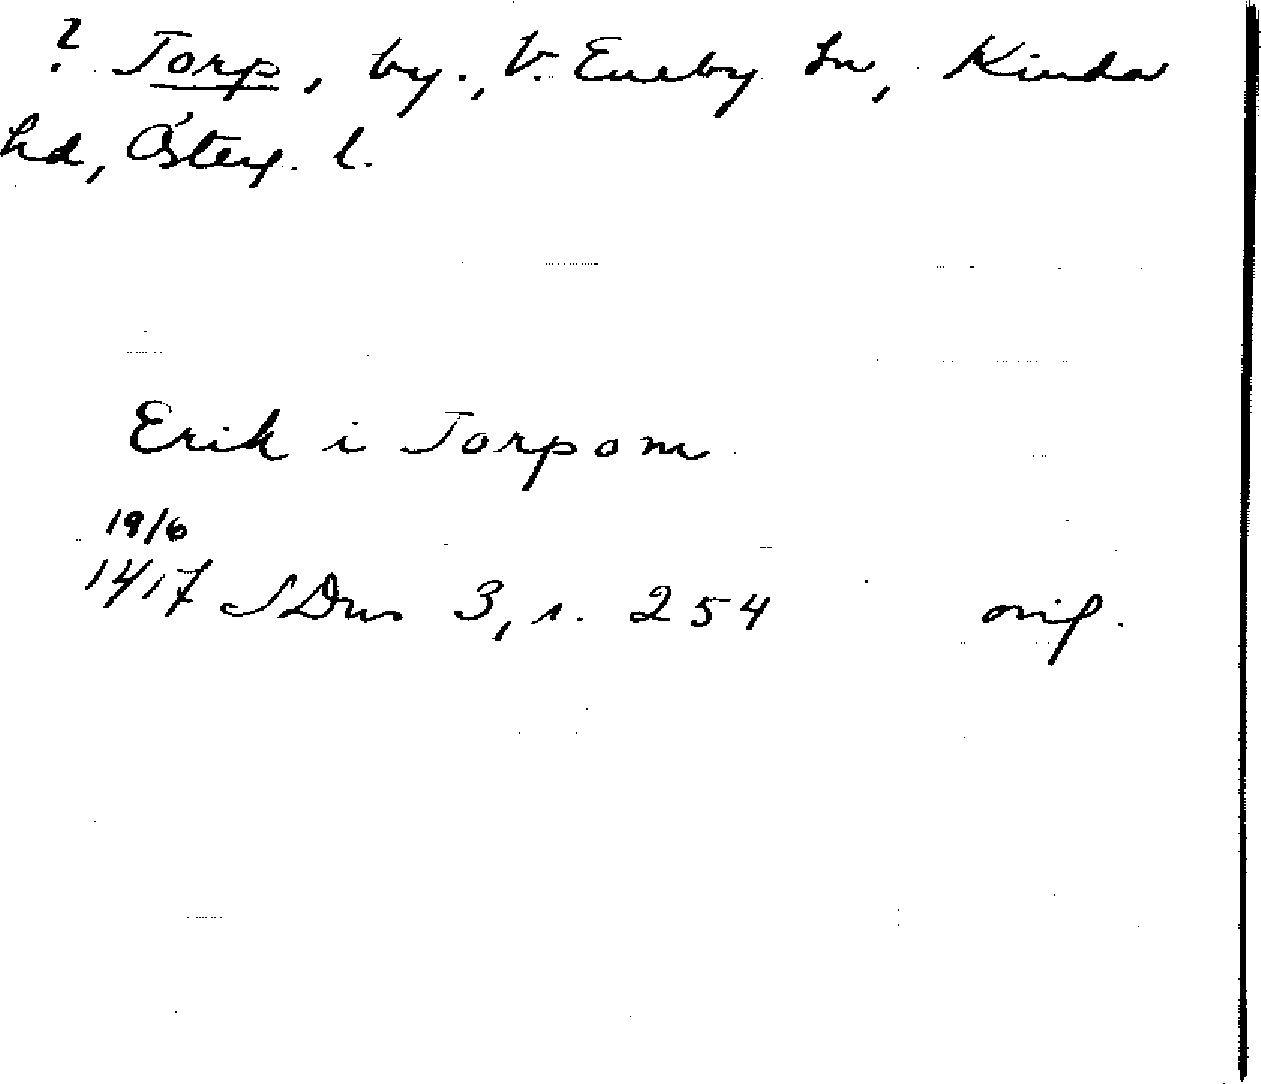 ? Torp, by., V. Eneby sn, Kinda
hd, Österg. l.
Erik i Torpom
19/6
1417 SDns 3, s. 254 orig.